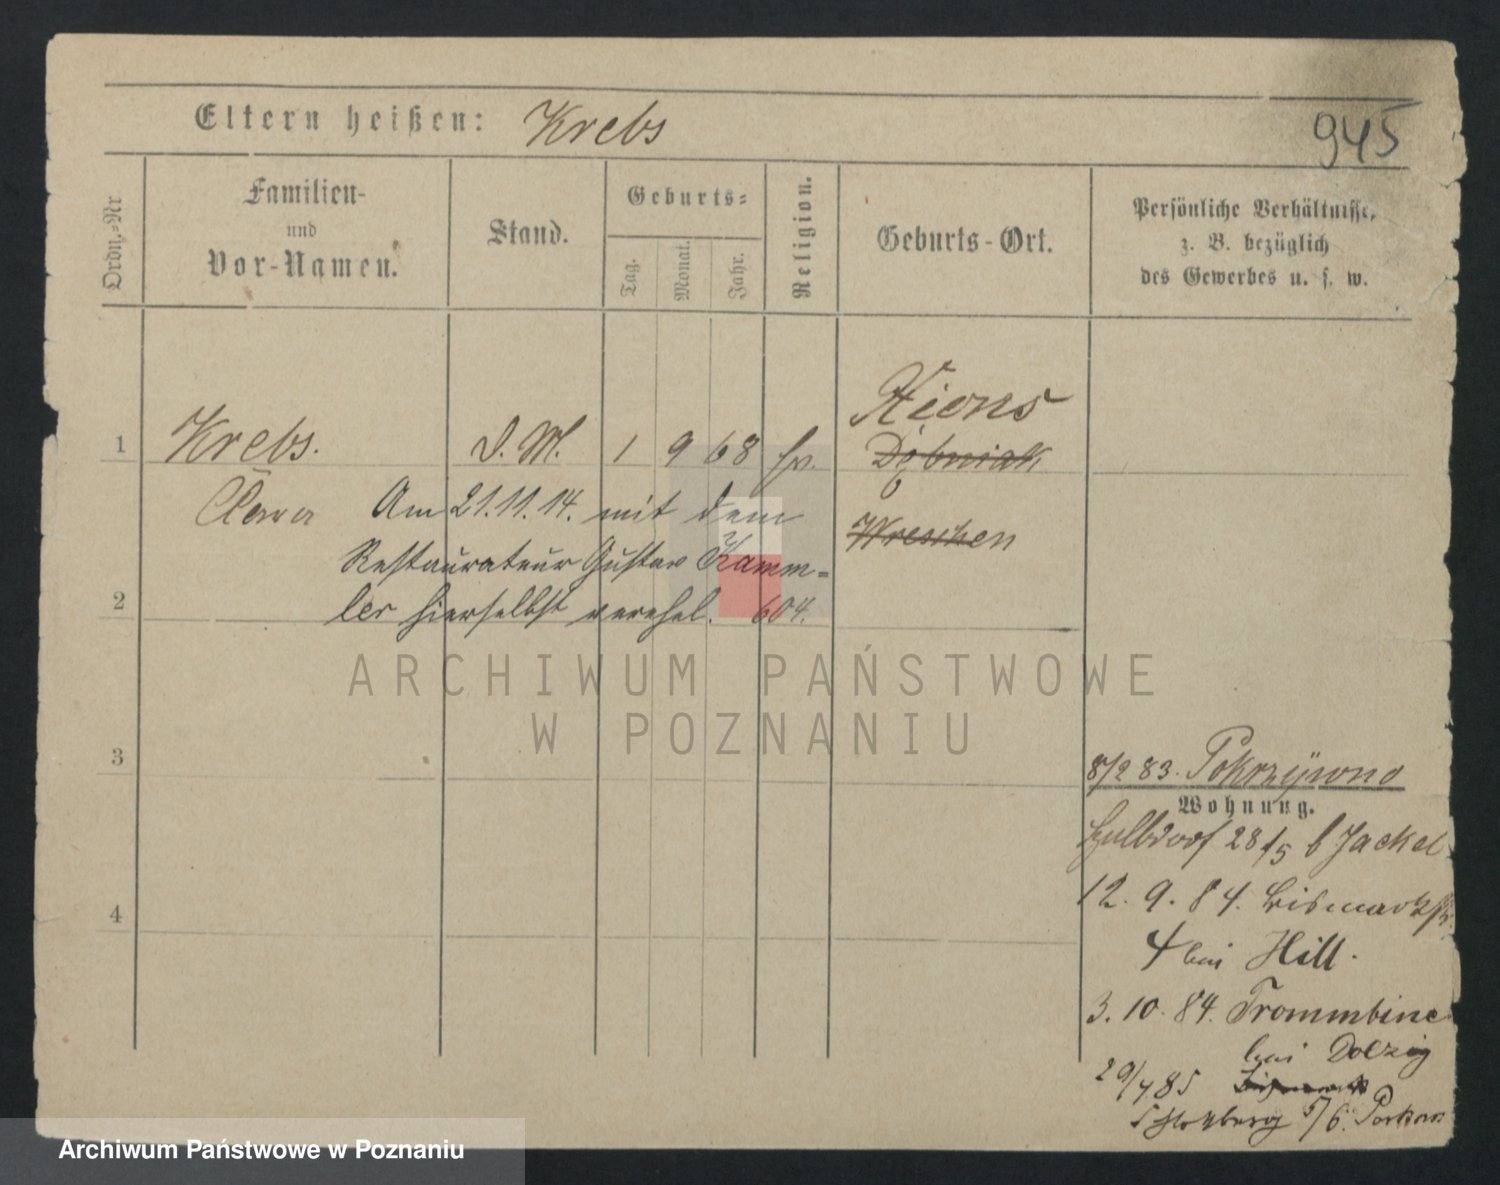 Eltern heißen: Krebs
945
Ordn.-Nr
Familien-
und
Vor-Namen.
Stand.
Geburts-
Tag.
Monat.
Jahr.
Religion.
Geburts-Ort.
Persönliche Verhältnisse,
z. B. bezüglich
des Gewerbes u. s. w.
Xions
1 Krebs. D. M. 1 9 68
Clara Am 21.11.14. mit dem
Wreschen
Restaurateur Gustav Kamm-
2 ler hierselbst verehel. 604.
ARCHIWUM PAŃSTWOWE
W POZNANIU
3
8/2 83. Pokrzywno
Wohnung.
28/5 b Jackel
4
12. 9. 84. Bismarckstr.
4 bei Hill.
3. 10. 84. Trommbine
bei Dolzig
29/4 85
5/6.
Archiwum Państwowe w Poznaniu